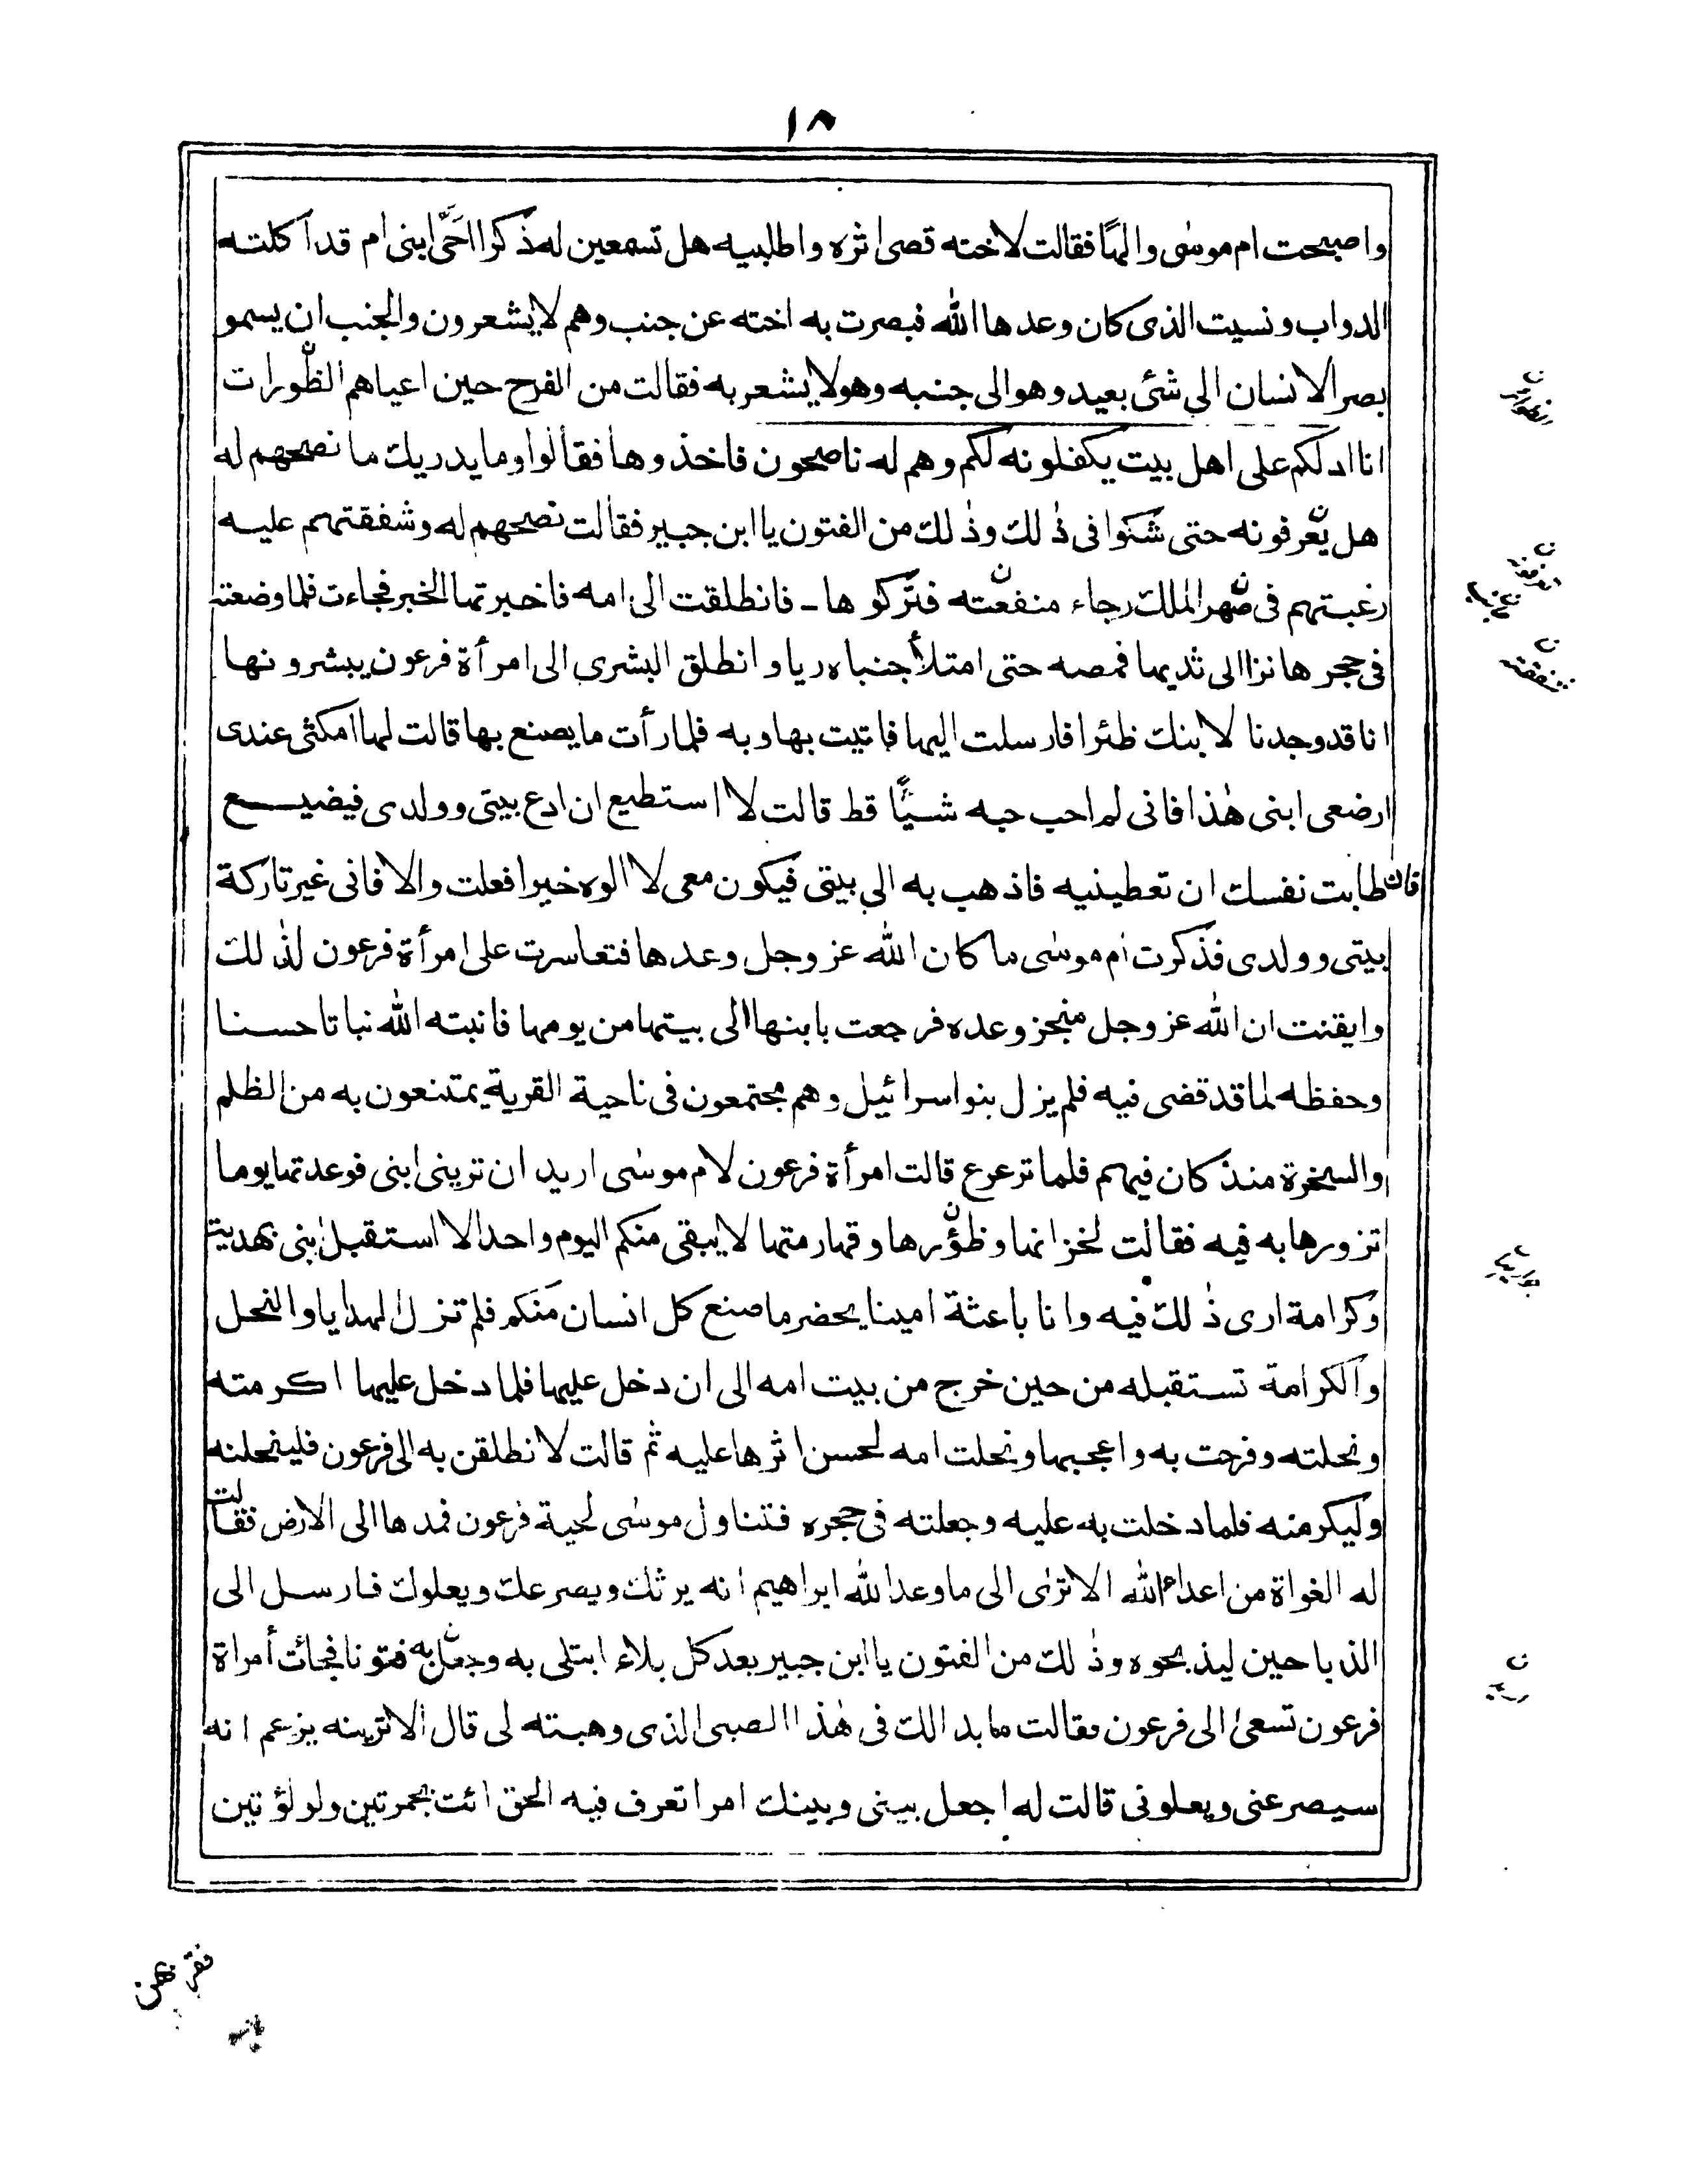 ١٨
واصبحت ام موسٰى والهًا فقالت لاخته قصى اثره واطلبيه هل تسمعين له ذكرا احَىٌّ ابنى ام قد اكلته
الدواب ونسيت الذى كان وعدها الله فبصرت به اخته عن جنب وهم لا يشعرون والجنب ان يسمو
بصر الانسان الى شئ بعيد وهو الى جنبه وهو لا يشعر به فقالت من الفرح حين اعياهم الظؤرات
انا ادلكم على اهل بيت يكفلونه لكم وهم له ناصحون فاخذوها فقالوا وما يدريك ما نصحهم له
هل يعرفونه حتى شكوا فى ذٰلك وذٰلك من الفتون يا ابن جبير فقالت نصحهم له وشفقتهم عليه
رغبتهم فى صهر الملك رجاء منفعته فتركوها ـ فانطلقت الى امه فاخبرتها الخبر فجاءت فلما وضعته
فى حجرها نزا الى ثديها فمصه حتى امتلأ جنباه ريا وانطلق البشرى الى امرأة فرعون يبشرونها
انا قد وجدنا لابنك ظئرا فارسلت اليها فاتيت بها وبه فلما رأت ما يصنع بها قالت لها امكثى عندى
ارضعى ابنى هٰذا فانى لم احب حبه شئًا قط قالت لا استطيع ان ادع بيتى وولدى فيضيع
فان طابت نفسك ان تعطينيه فاذهب به الى بيتى فيكون معى لا الوه خيرا فعلت والا فانى غير تاركة
بيتى وولدى فذكرت ام موسٰى ما كان الله عز وجل وعدها فتعاسرت على امرأة فرعون لذٰلك
وايقنت ان الله عز وجل منجز وعده فرجعت بابنها الى بيتها من يومها فانبته الله نباتا حسنا
وحفظه لما قد قضى فيه فلم يزل بنو اسرائيل وهم مجتمعون فى ناحية القرية يمتنعون به من الظلم
والسخرة منذ كان فيهم فلما ترعرع قالت امرأة فرعون لام موسٰى اريد ان ترينى ابنى فوعدتها يوما
تزورها به فيه فقالت لخزانها وظؤرها وقهارمتها لا يبقى منكم اليوم واحد الا استقبل ابنى بهدية
وكرامة ارى ذٰلك فيه وانا باعثة امينا يحضر ما صنع كل انسان منكم فلم تزل الهدايا والنحل
والكرامة تستقبله من حين خرج من بيت امه الى ان دخل عليها فلما دخل عليها اكرمته
ونحلته وفرحت به واعجبها ونحلت امه لحسن اثرها عليه ثم قالت لانطلقن به الى فرعون فلينحلنه
وليكرمنه فلما دخلت به عليه وجعلته فى حجره فتناول موسٰى لحية فرعون فمدها الى الارض فقالت
له الغواة من اعداء الله الا ترٰى الى ما وعد الله ابراهيم انه يرثك ويصرعك ويعلوك فارسل الى
الذباحين ليذبحوه وذٰلك من الفتون يا ابن جبير بعد كل بلاء ابتلى به وجعل به فتونا فجائت أمراة
فرعون تسعىٰ الى فرعون فقالت ما بدا لك فى هٰذا الصبى الذى وهبته لى قال الا ترينه يزعم انه
سيصرعنى ويعلونى قالت له اجعل بينى وبينك امرا تعرف فيه الحق ائت بجمرتين ولولؤتين